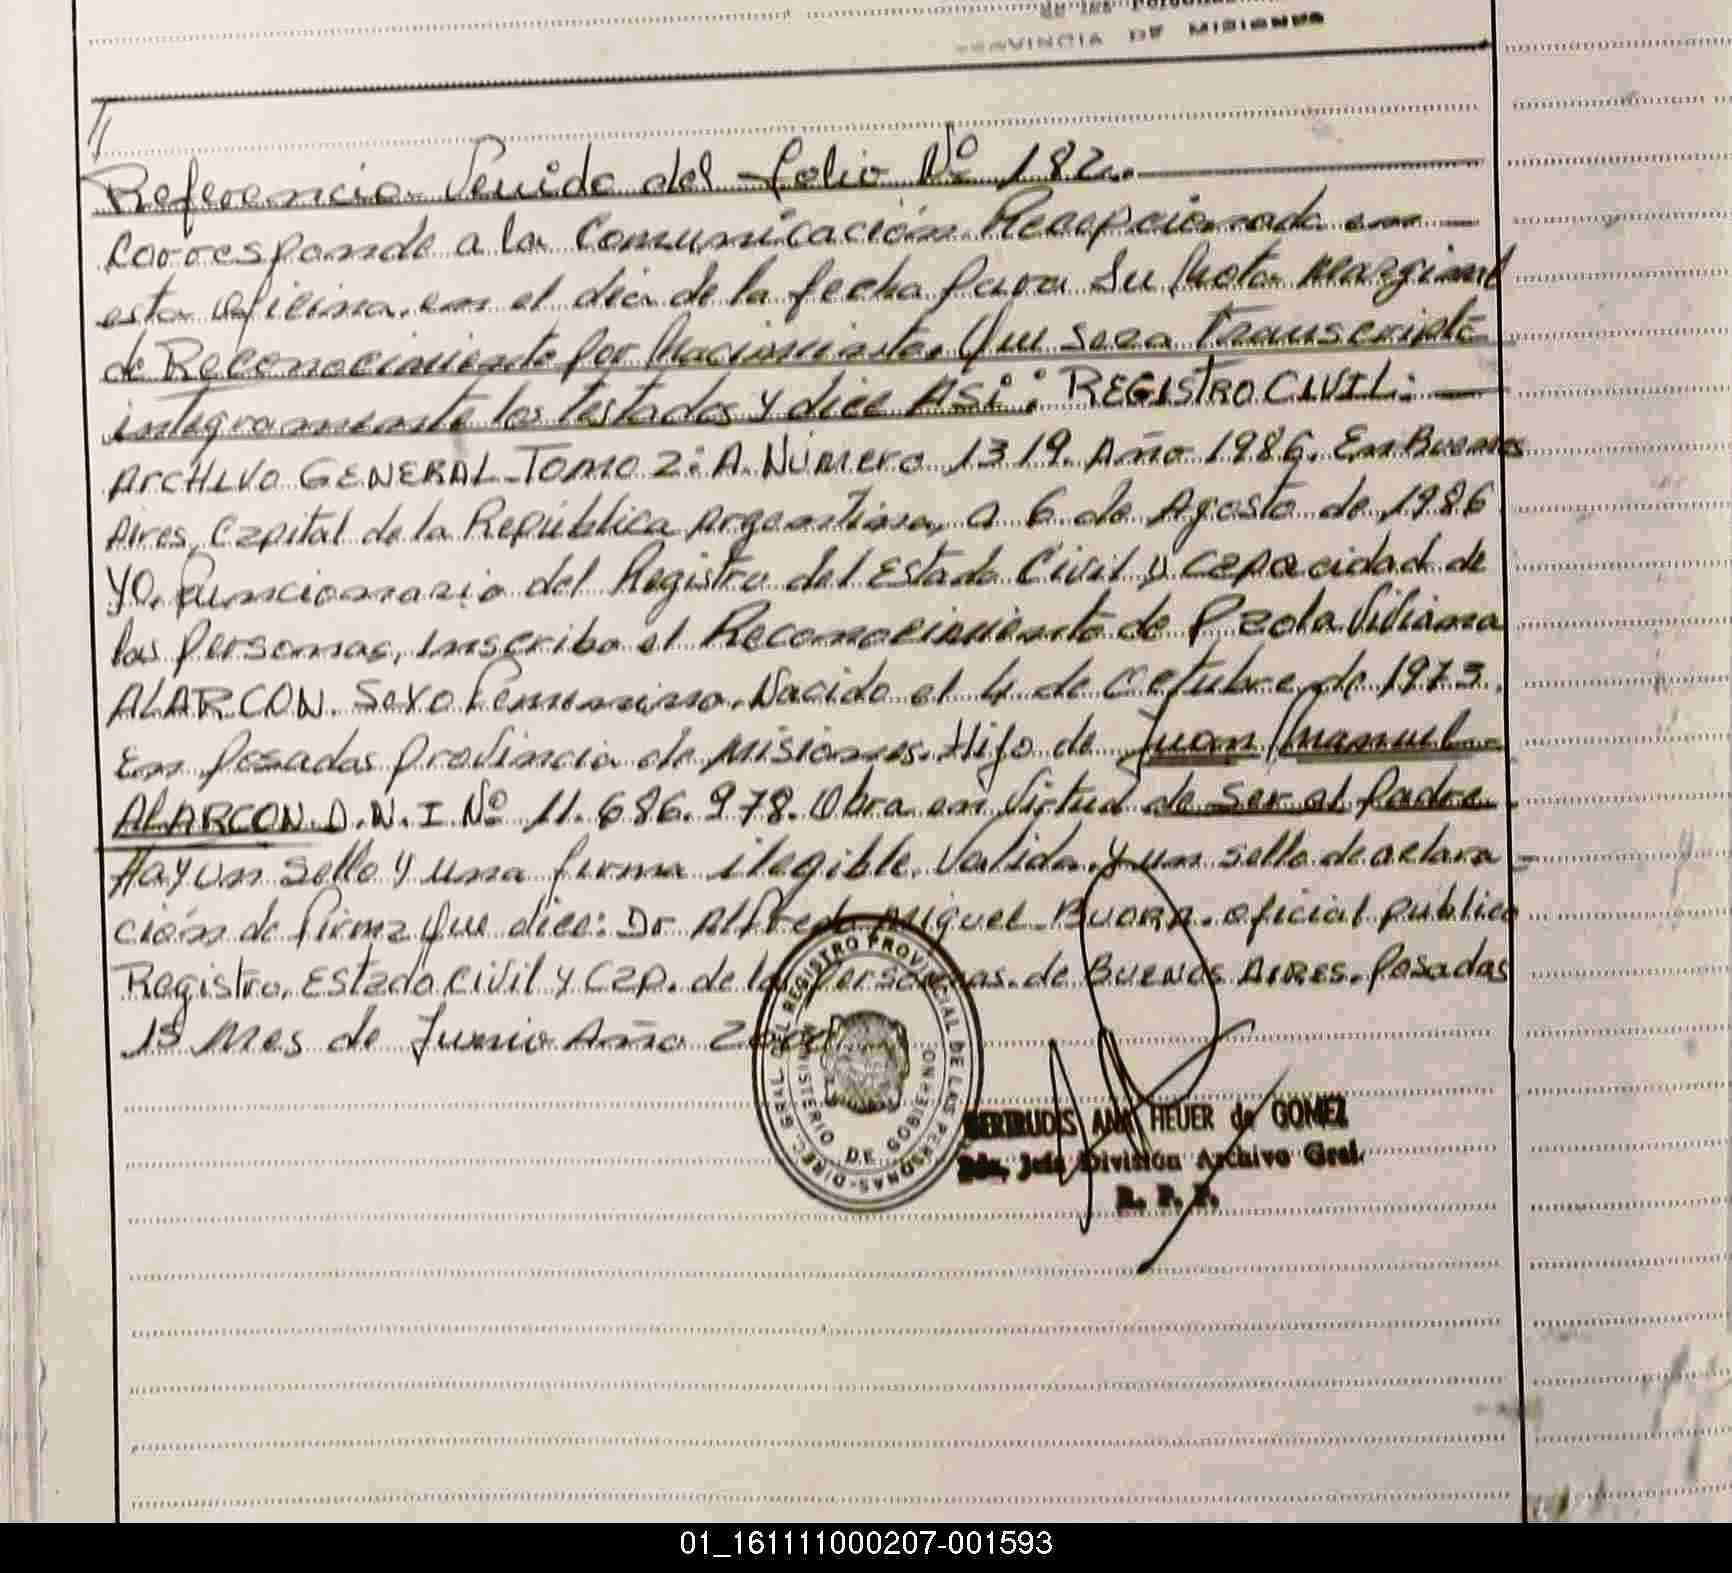 de las Personas
PROVINCIA DE MISIONES
Referencia Venido del folio Nº 182.
Corresponde a la Comunicación Recepcionada en
esta oficina, en el día de la fecha para su Nota Marginal
de Reconocimiento por Nacimiento. Que sera transcripto
integramente los testados y dice ASi: REGISTRO CIVIL:
ARCHIVO GENERAL-TOMO 2: A. Número 1319. Año 1986. En Buenos
Aires, Capital de la República Argentina, a 6 de Agosto de 1986
yo, funcionario del Registro del Estado Civil y capacidad de
las personas, inscribo el Reconocimiento de Paola Viviana
ALARCON. Sexo femenino. Nacido el 4 de octubre de 1973.
En Posadas provincia de Misiones. Hijo de Juan Manuel
ALARCON D.N.I Nº 11.686.978. Obra en virtud de ser el padre.
Hay un sello y una firma ilegible. Valida. y un sello de aclara-
ción de firma que dice: Dr Alfredo Miguel Buorn. oficial público
Registro. Estado civil y Cap. de las personas. de BUENOS AIRES. Posadas
15 Mes de Junio Año
DIREC. GRAL. DEL REGISTRO PROVINCIAL DE LAS PERSONAS
MINISTERIO DE GOBIERNO
GERTRUDIS ANA HEUER de GOMEZ
Jefa División Archivo Gral.
R. P. P.
01_161111000207-001593